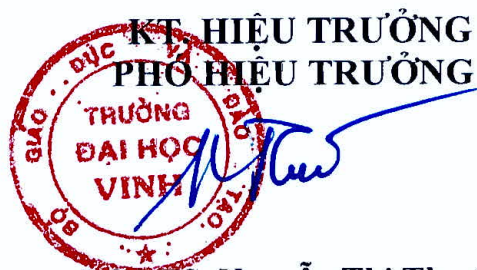 KT. HIỆU TRƯỞNG
PHÓ HIỆU TRƯỞNG
BỘ GIÁO DỤC VÀ ĐÀO TẠO
TRƯỜNG
ĐẠI HỌC
VINH
Nguyễn Thị